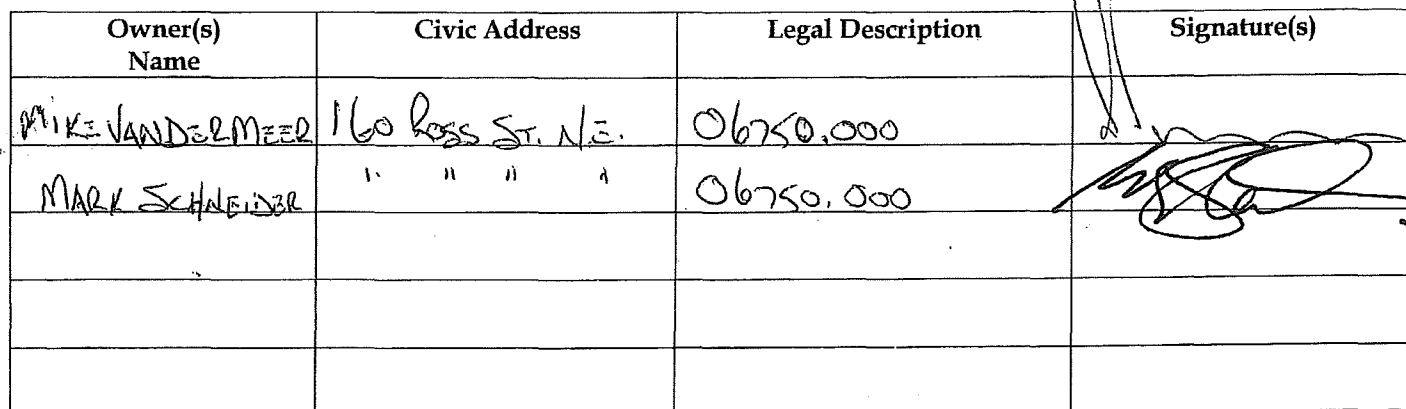 Owner(s) Name Civic Address Legal Description Signature(s)
MIKE VANDERMEER 160 ROSS ST. N.E. 06750.000
MARK SCHNEIDER " " " " 06750.000